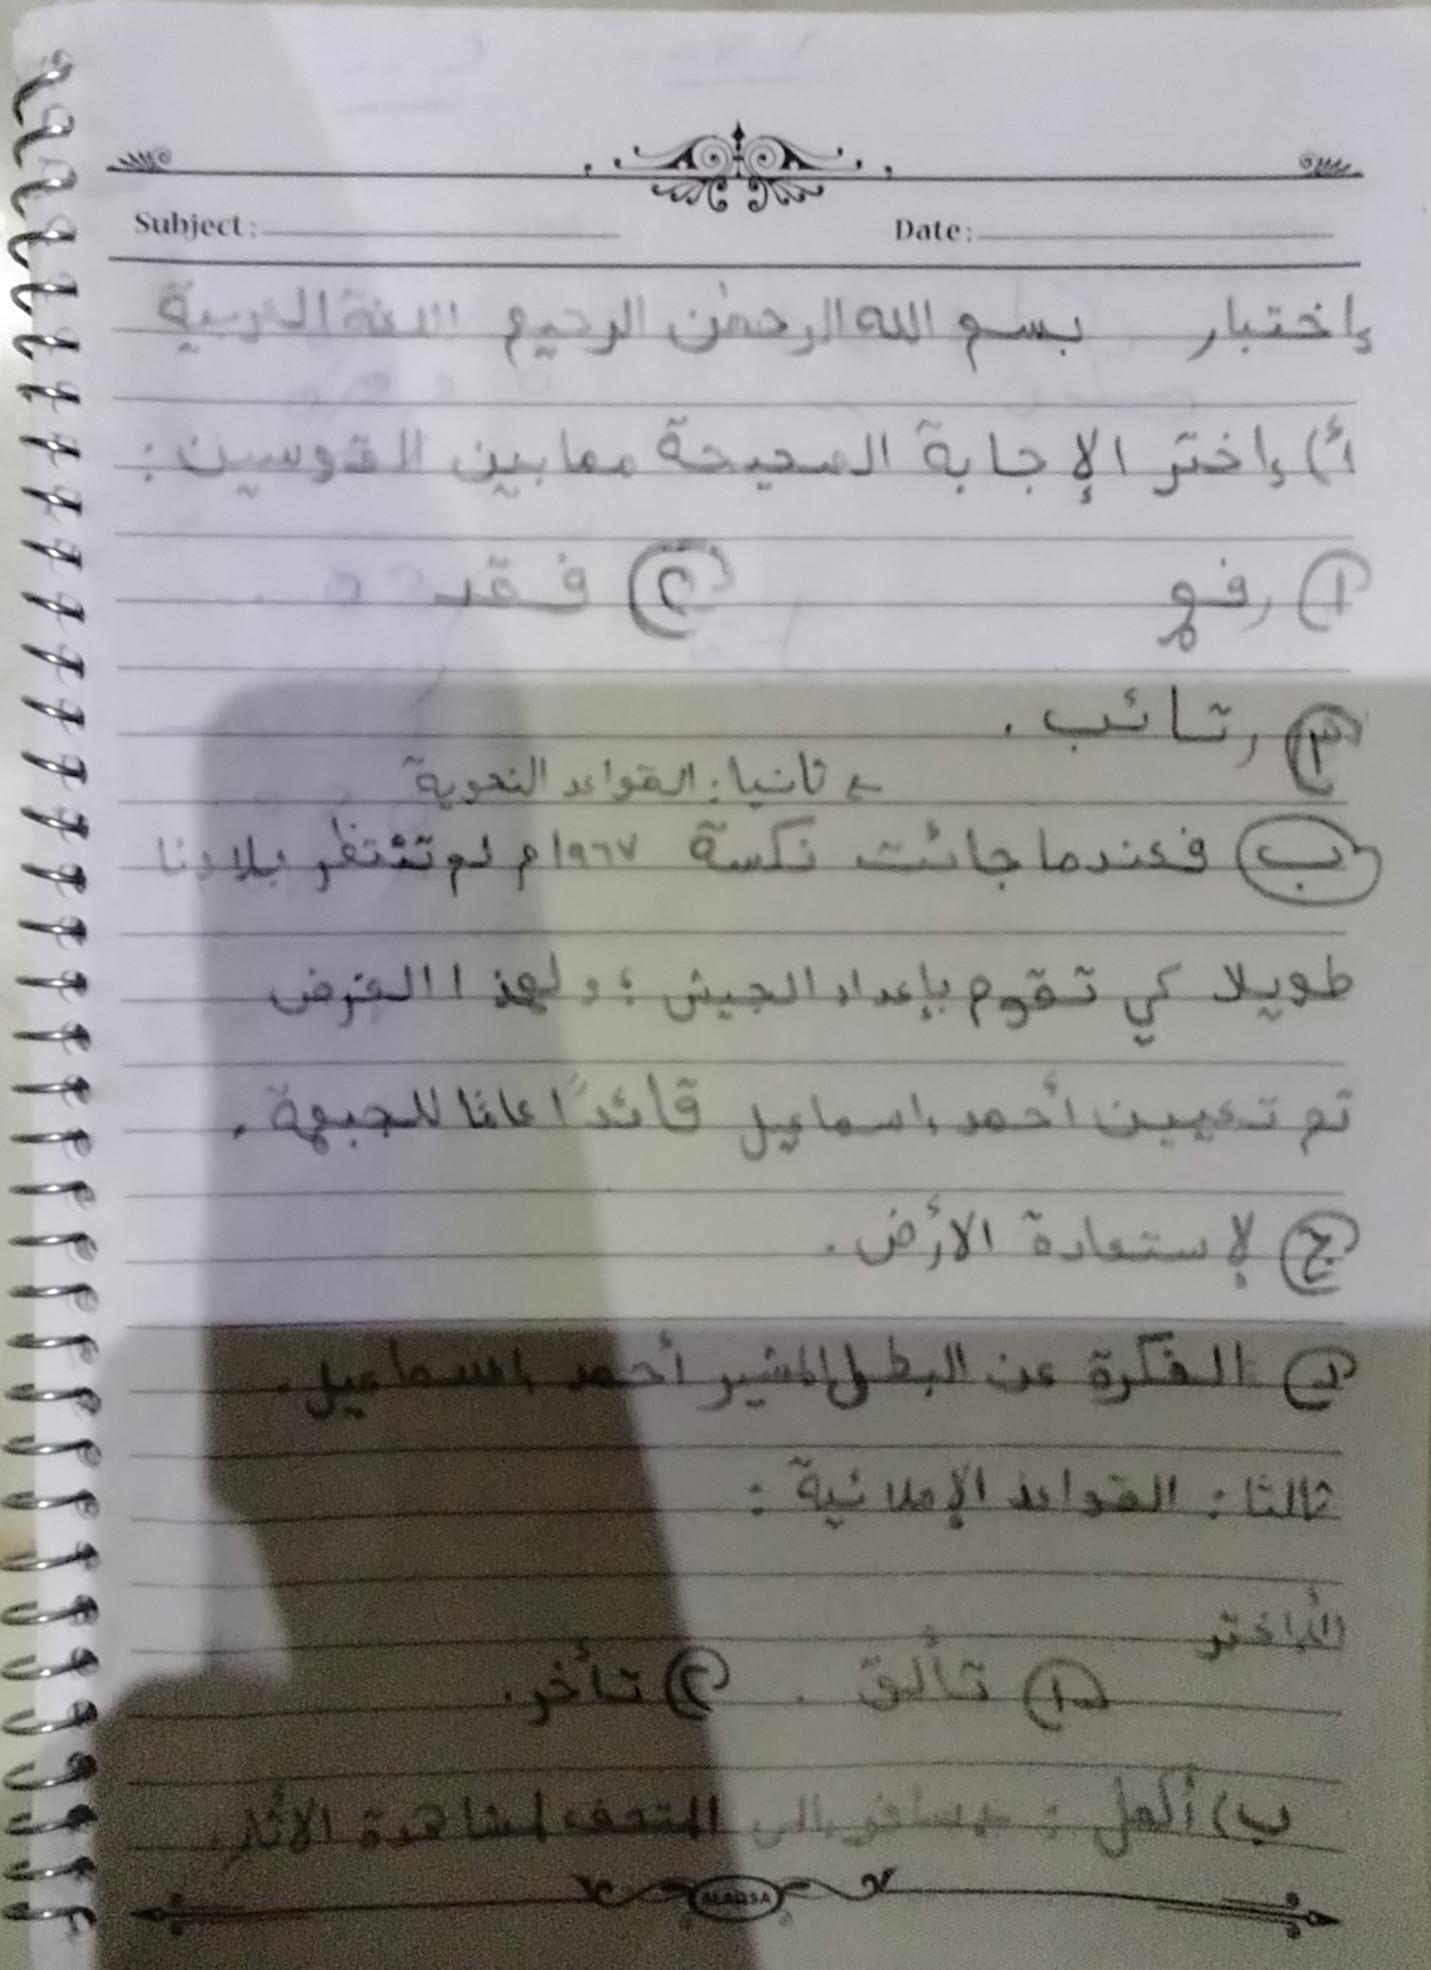 Subject: Date:
إختبار بسم الله الرحمن الرحيم اللغة العربية
أ) إختر الإجابة الصحيحة مما بين القوسين:
① ② فقد
③ رتائب.
ثانيا: القواعد النحوية
ب فعندما جائت نكسة ١٩٦٧م لم تنتظر بلادنا
طويلا كي تقوم بإعداد الجيش؛ ولهذا الغرض
تم تعيين أحمد إسماعيل قائدًا عامًا للجبهة.
ج لإستعادة الأرض.
د الفكرة عن البطل المشير أحمد إسماعيل.
ثالثا: القواعد الإملائية:
إختر
① تألق. ② تأخر.
ب) أكمل: إلى المتحف لمشاهدة الأثار.
ALAQSA